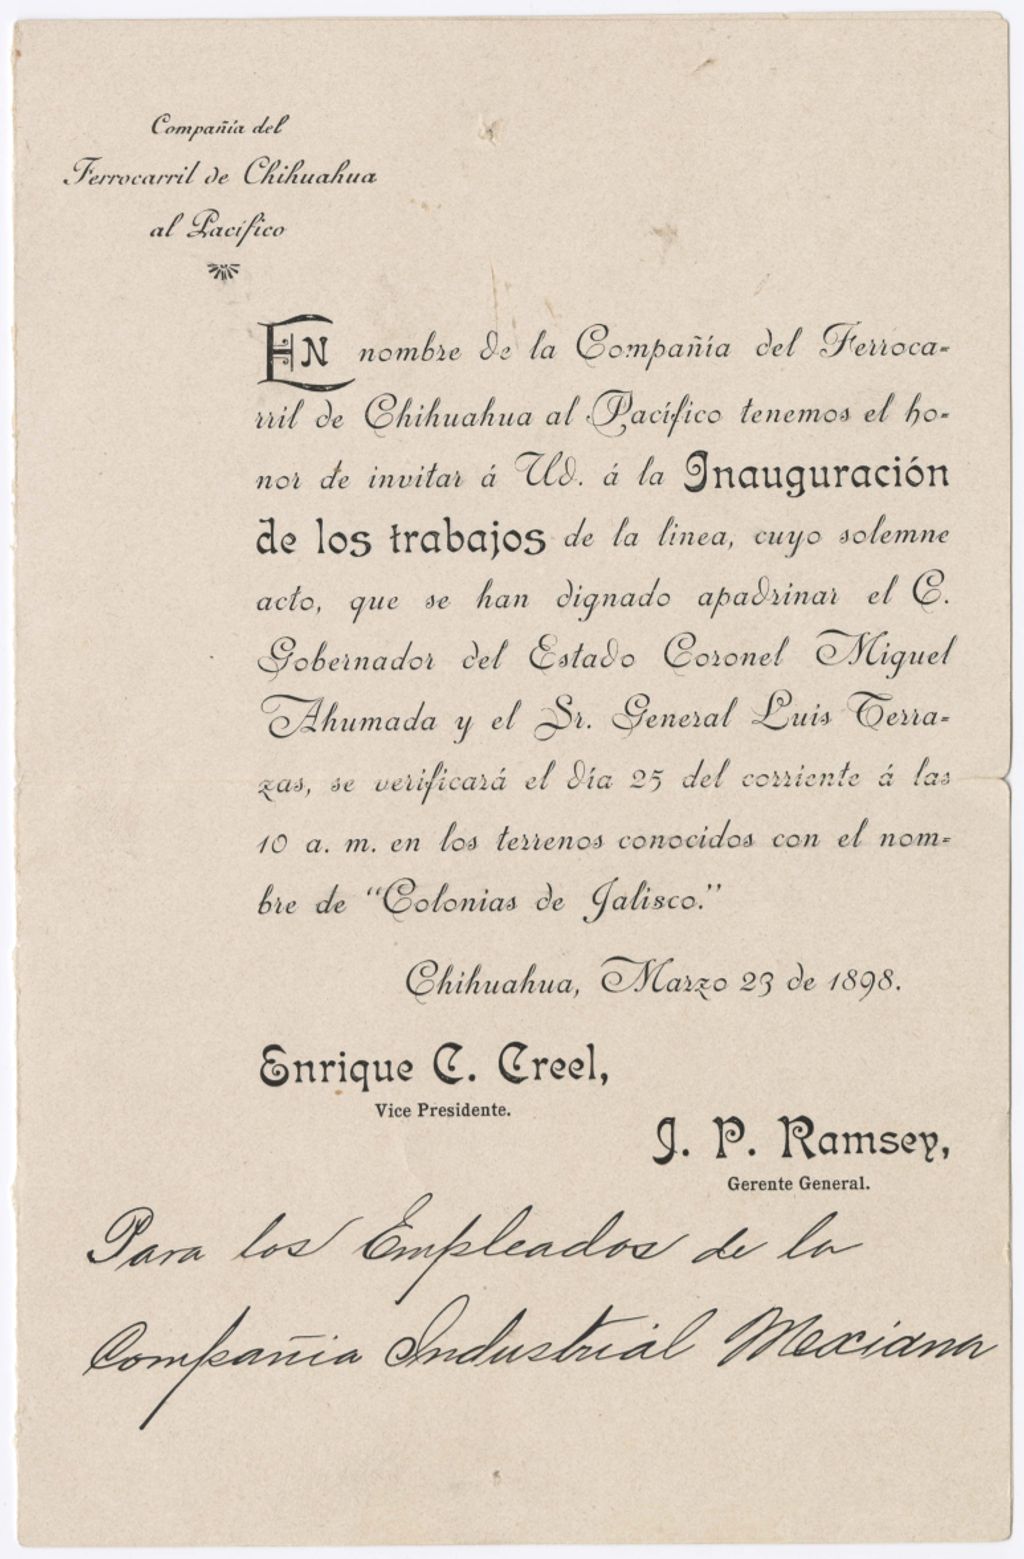 Compañía del
Ferrocarril de Chihuahua
al Pacífico
EN nombre de la Compañía del Ferroca-
rril de Chihuahua al Pacífico tenemos el ho-
nor de invitar á Ud. á la Inauguración
de los trabajos de la linea, cuyo solemne
acto, que se han dignado apadrinar el C.
Gobernador del Estado Coronel Miguel
Ahumada y el Sr. General Luis Terra-
zas, se verificará el día 25 del corriente á las
10 a. m. en los terrenos conocidos con el nom-
bre de “Colonias de Jalisco.”
Chihuahua, Marzo 23 de 1898.
Enrique C. Creel,
Vice Presidente.
J. P. Ramsey,
Gerente General.
Para los Empleados de la
Compañia Industrial Mexiana